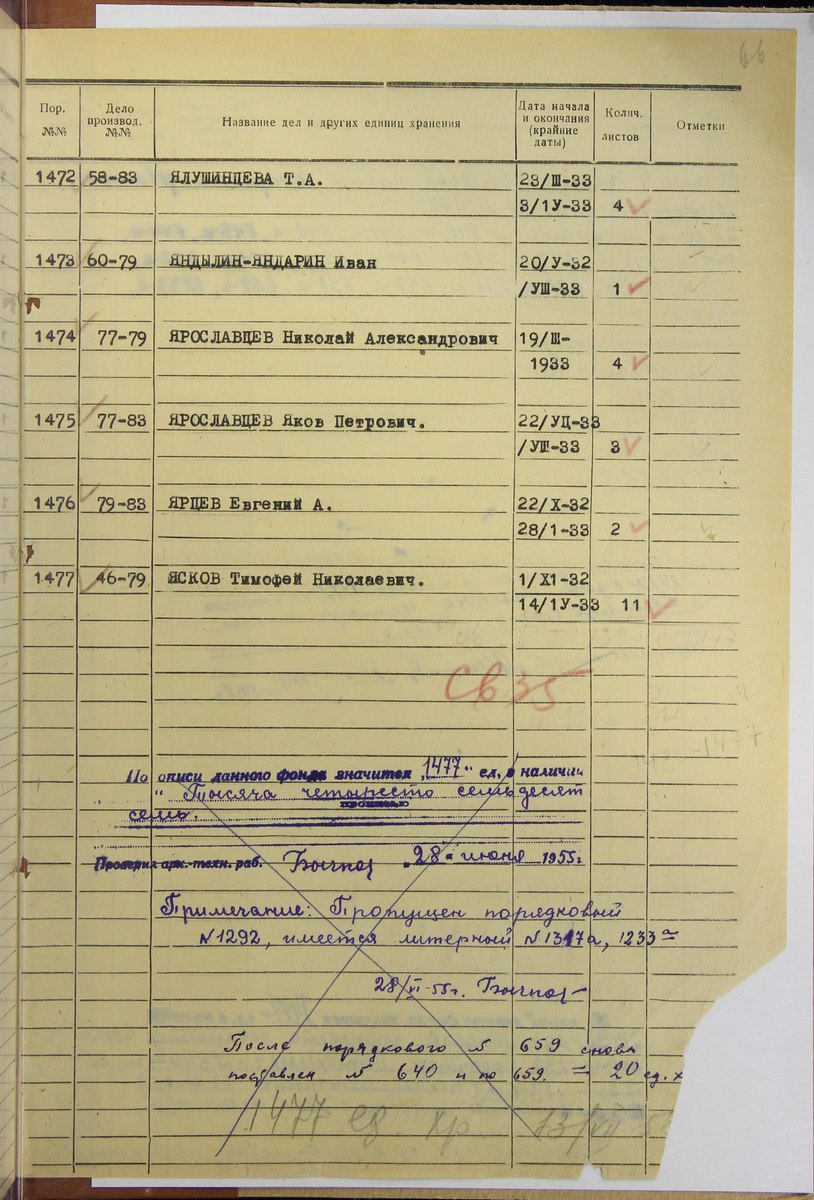 66
Пор. №№ Дело производ. №№ Название дел и других единиц хранения Дата начала и окончания (крайние даты) Колич. листов Отметки
1472 58-83 ЯЛУШИНЦЕВА Т.А. 23/Ш-33
3/1У-33 4
1473 60-79 ЯНДЫЛИН-ЯНДАРИН Иван 20/У-32
/УШ-33 1
1474 77-79 ЯРОСЛАВЦЕВ Николай Александрович 19/Ш-
1933 4
1475 77-83 ЯРОСЛАВЦЕВ Яков Петрович. 22/УЦ-33
/УШ-33 3
1476 79-83 ЯРЦЕВ Евгений А. 22/Х-32
28/1-33 2
1477 46-79 ЯСКОВ Тимофей Николаевич. 1/Х1-32
14/1У-33 11
Св 35
По описи данного фонда значится „1477" ед. в наличии
"Тысяча четыреста семьдесят
прописью
семь.
Проверил арх.-техн. раб. „28" июня 1955г
Примечание: Пропущен порядковый
№1292, имеется литерный №1317а, 1233а
28/VI-55г.
После порядкового № 659 снова
поставлен № 640 и по 659. = 20 ед. х
1477 ед. хр. 13/VII